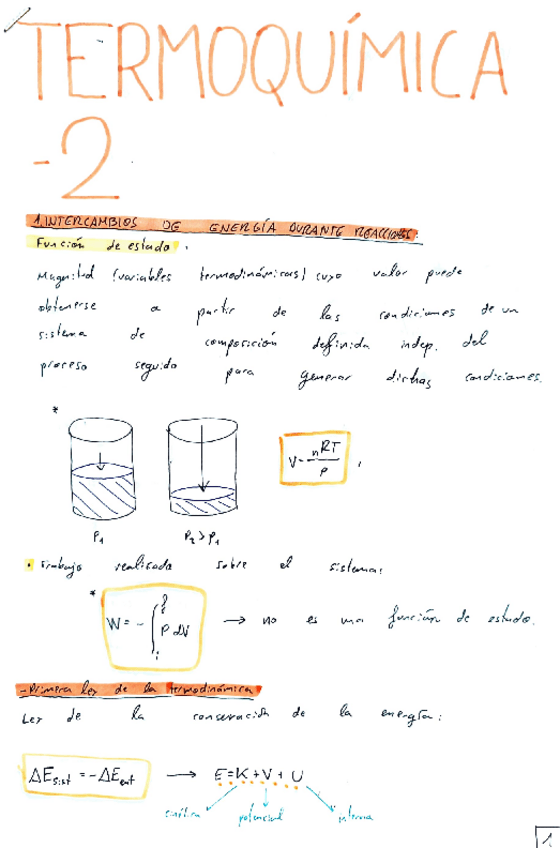 TERMOQUÍMICA
-2
1.INTERCAMBIOS DE ENERGÍA DURANTE REACCIONES.
Función de estado.
Magnitud (variables termodinámicas) cuyo valor puede
obtenerse a partir de las condiciones de un
sistema de composición definida indep. del
proceso seguido para generar dichas condiciones.
*
V=nRT/P
P1
P2>P1
• Trabajo realizado sobre el sistema:
*
W=-∫ᵢᶠ P dV → no es una función de estado.
-Primera ley de la termodinámica
Ley de la conservación de la energía:
ΔEsist = -ΔEent → E=K+V+U
cinética potencial interna
1